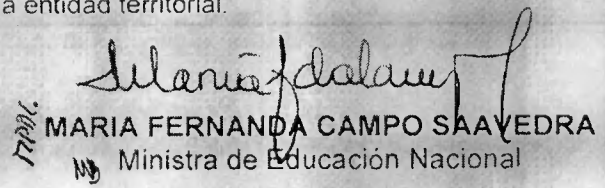 a entidad territorial.
MARIA FERNANDA CAMPO SAAVEDRA
Ministra de Educación Nacional